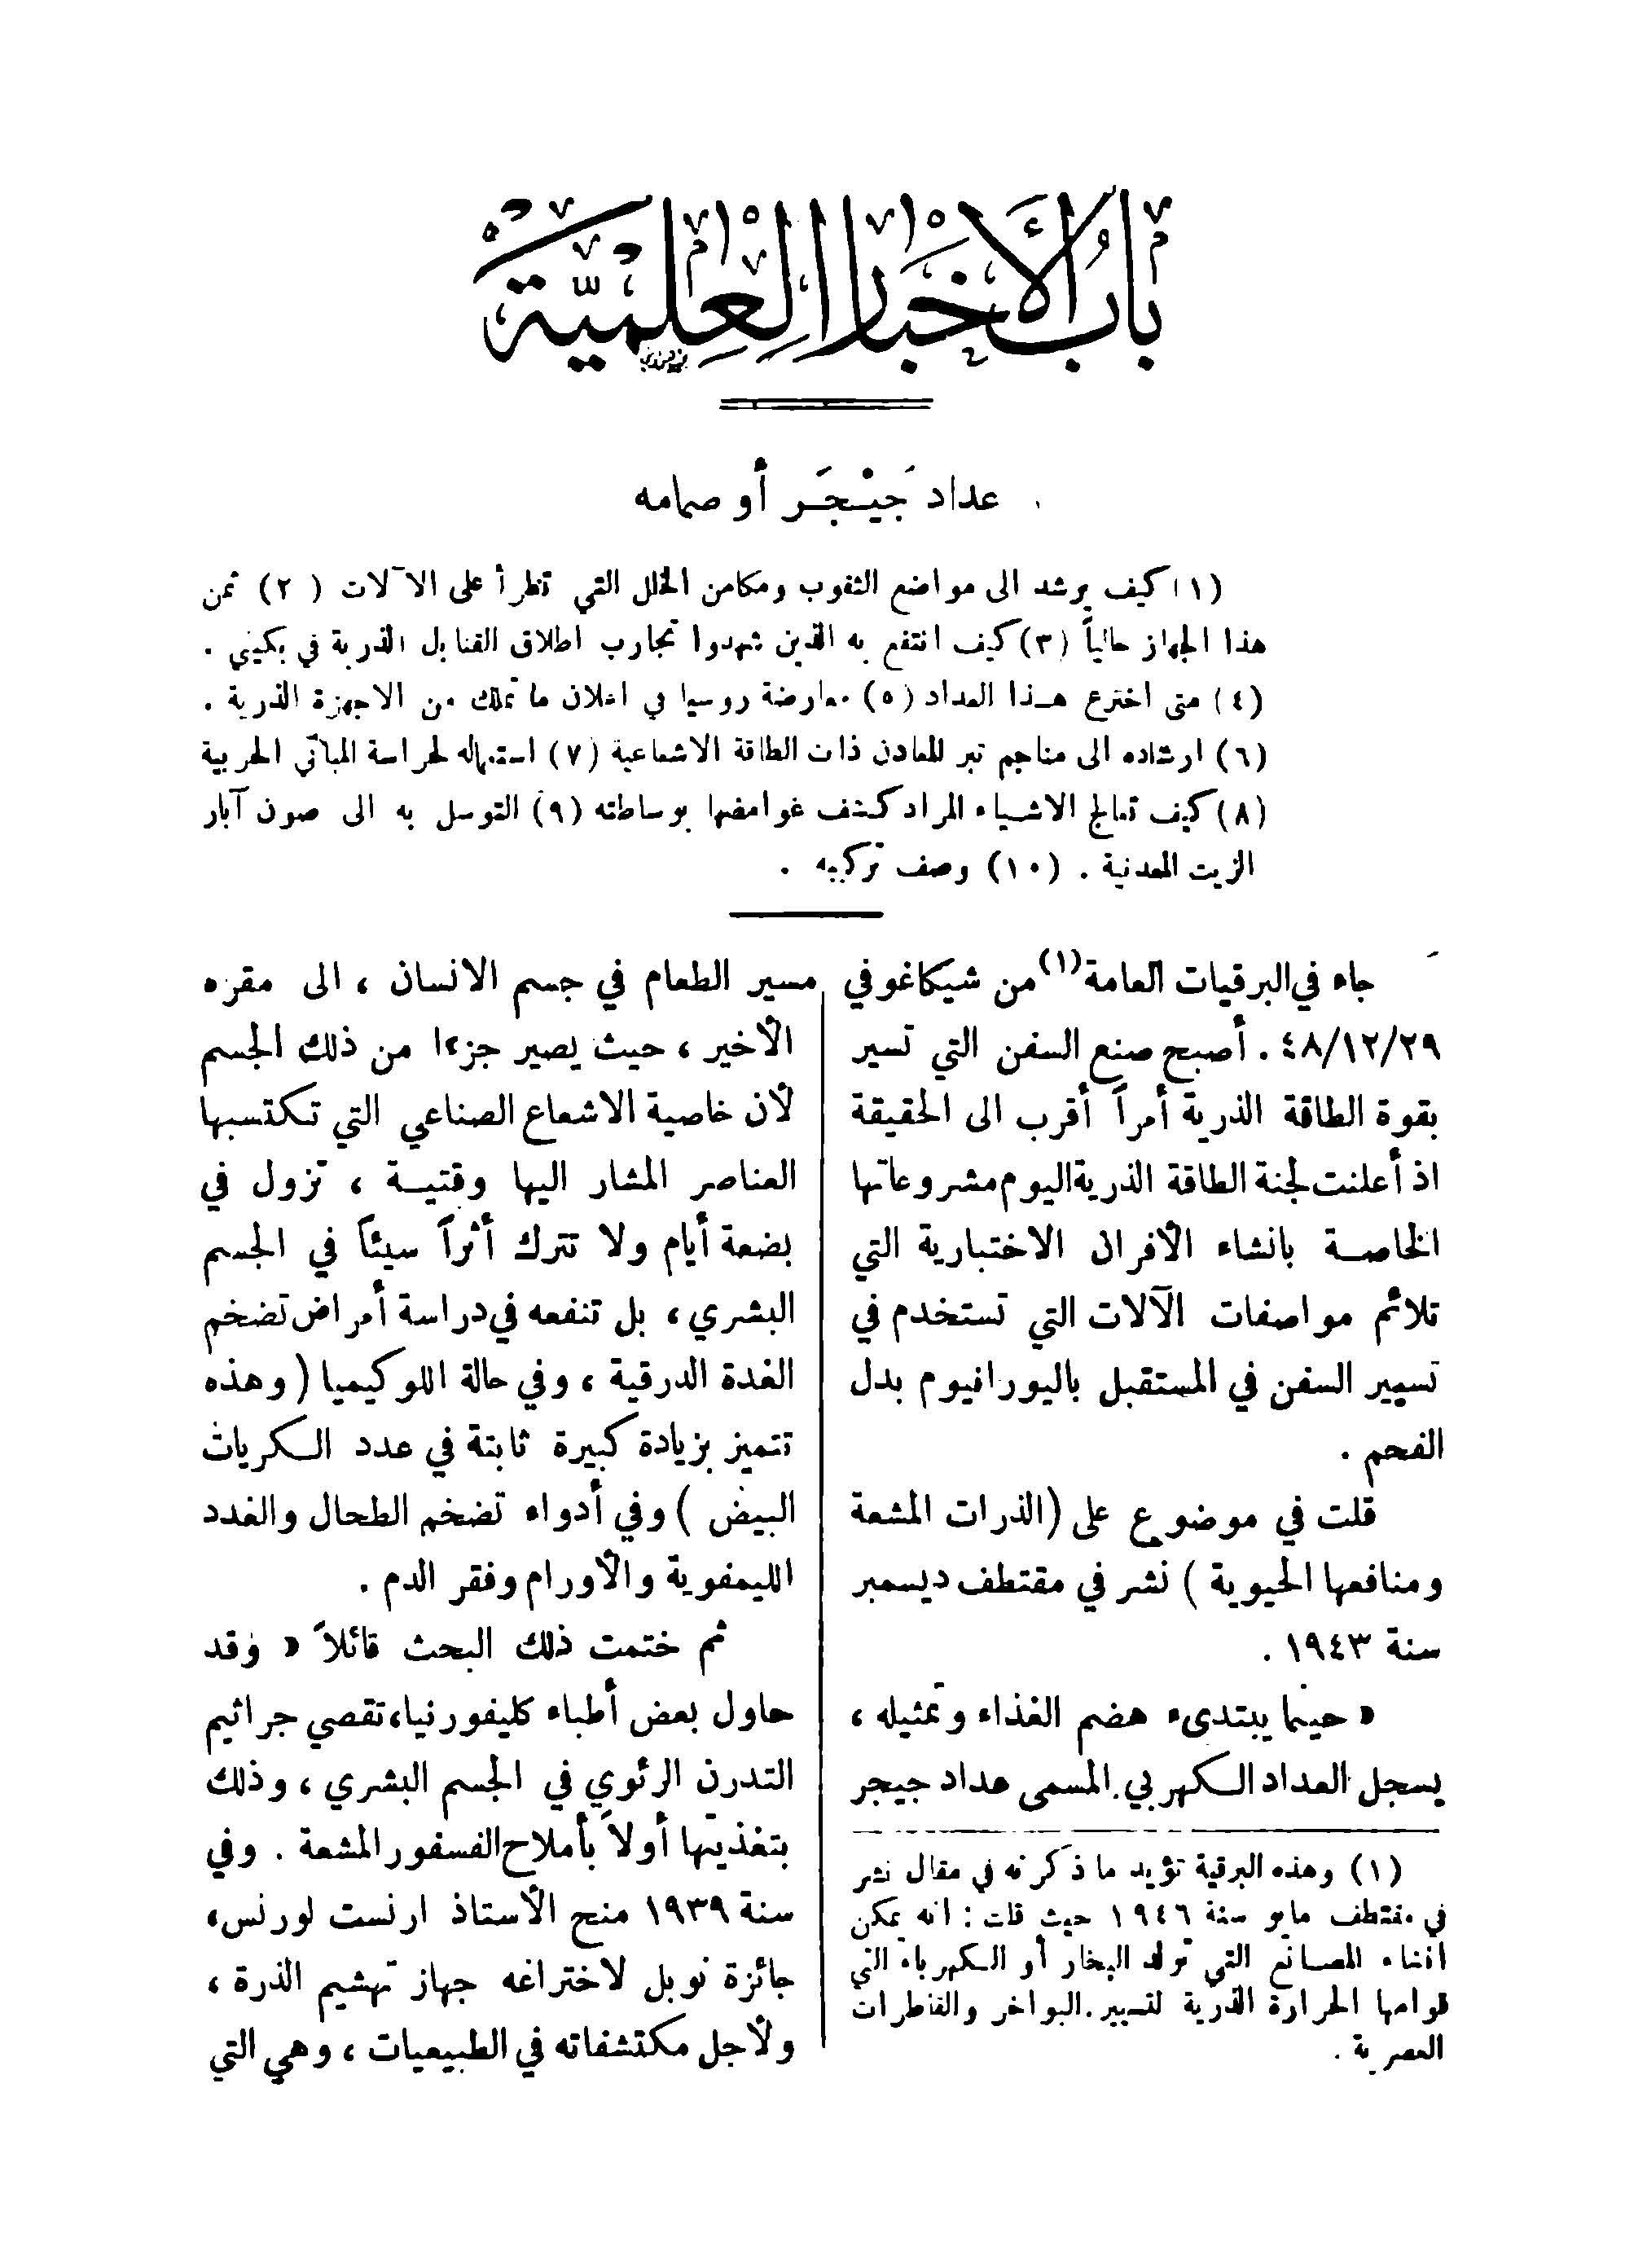 باب الأخبار العلمية
عداد جَيْجَر أو صمامه
(١) كيف يرشد الى مواضع الثقوب ومكامن الخلل التي تطرأ على الآلات (٢) ثمن
هذا الجهاز حالياً (٣) كيف انتفع به الذين شهدوا تجارب اطلاق القنابل الذرية في بكيني .
(٤) متى اخترع هذا العداد (٥) معارضة روسيا في اعلان ما تملك من الاجهزة الذرية .
(٦) ارشاده الى مناجم تبر المعادن ذات الطاقة الاشعاعية (٧) استعماله لحراسة المباني الحربية
(٨) كيف تعالج الاشياء المراد كشف غوامضها بوساطته (٩) التوسل به الى صون آبار
الزيت المعدنية . (١٠) وصف تركيبه .
جاء في البرقيات العامة(١) من شيكاغو في
٤٨/١٢/٢٩ . أصبح صنع السفن التي تسير
بقوة الطاقة الذرية أمراً أقرب الى الحقيقة
اذ أعلنت لجنة الطاقة الذرية اليوم مشروعاتها
الخاصة بانشاء الأفران الاختبارية التي
تلائم مواصفات الآلات التي تستخدم في
تسيير السفن في المستقبل باليورانيوم بدل
الفحم .
قلت في موضوع على (الذرات المشعة
ومنافعها الحيوية) نشر في مقتطف ديسمبر
سنة ١٩٤٣ .
« حينما يبتدىء هضم الغذاء وتمثيله ،
يسجل العداد الكهربي المسمى عداد جيجر
(١) وهذه البرقية تؤيد ما ذكرته في مقال نشر
في مقتطف مايو سنة ١٩٤٦ حيث قلت : انه يمكن
انشاء المصانع التي تولد البخار أو الكهرباء التي
قوامها الحرارة الذرية لتسيير البواخر والقاطرات
العصرية .
مسير الطعام في جسم الانسان ، الى مقره
الأخير ، حيث يصير جزءا من ذلك الجسم
لأن خاصية الاشعاع الصناعي التي تكتسبها
العناصر المشار اليها وقتية ، تزول في
بضعة أيام ولا تترك أثراً سيئاً في الجسم
البشري ، بل تنفعه في دراسة أمراض تضخم
الغدة الدرقية ، وفي حالة اللوكيميا (وهذه
تتميز بزيادة كبيرة ثابتة في عدد الكريات
البيض) وفي أدواء تضخم الطحال والغدد
الليمفوية والأورام وفقر الدم .
ثم ختمت ذلك البحث قائلاً « وقد
حاول بعض أطباء كليفورنيا، تقصي جراثيم
التدرن الرئوي في الجسم البشري ، وذلك
بتغذيتها أولاً بأملاح الفسفور المشعة . وفي
سنة ١٩٣٩ منح الأستاذ ارنست لورنس،
جائزة نوبل لاختراعه جهاز تهشيم الذرة ،
ولأجل مكتشفاته في الطبيعيات ، وهي التي